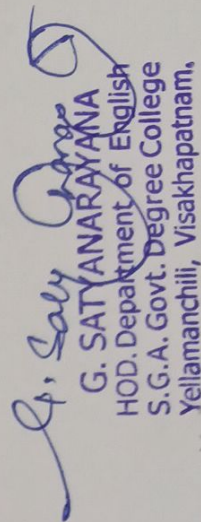 G. Saty
G. SATYANARAYANA
HOD. Department of English
S.G.A. Govt. Degree College
Yellamanchili, Visakhapatnam,